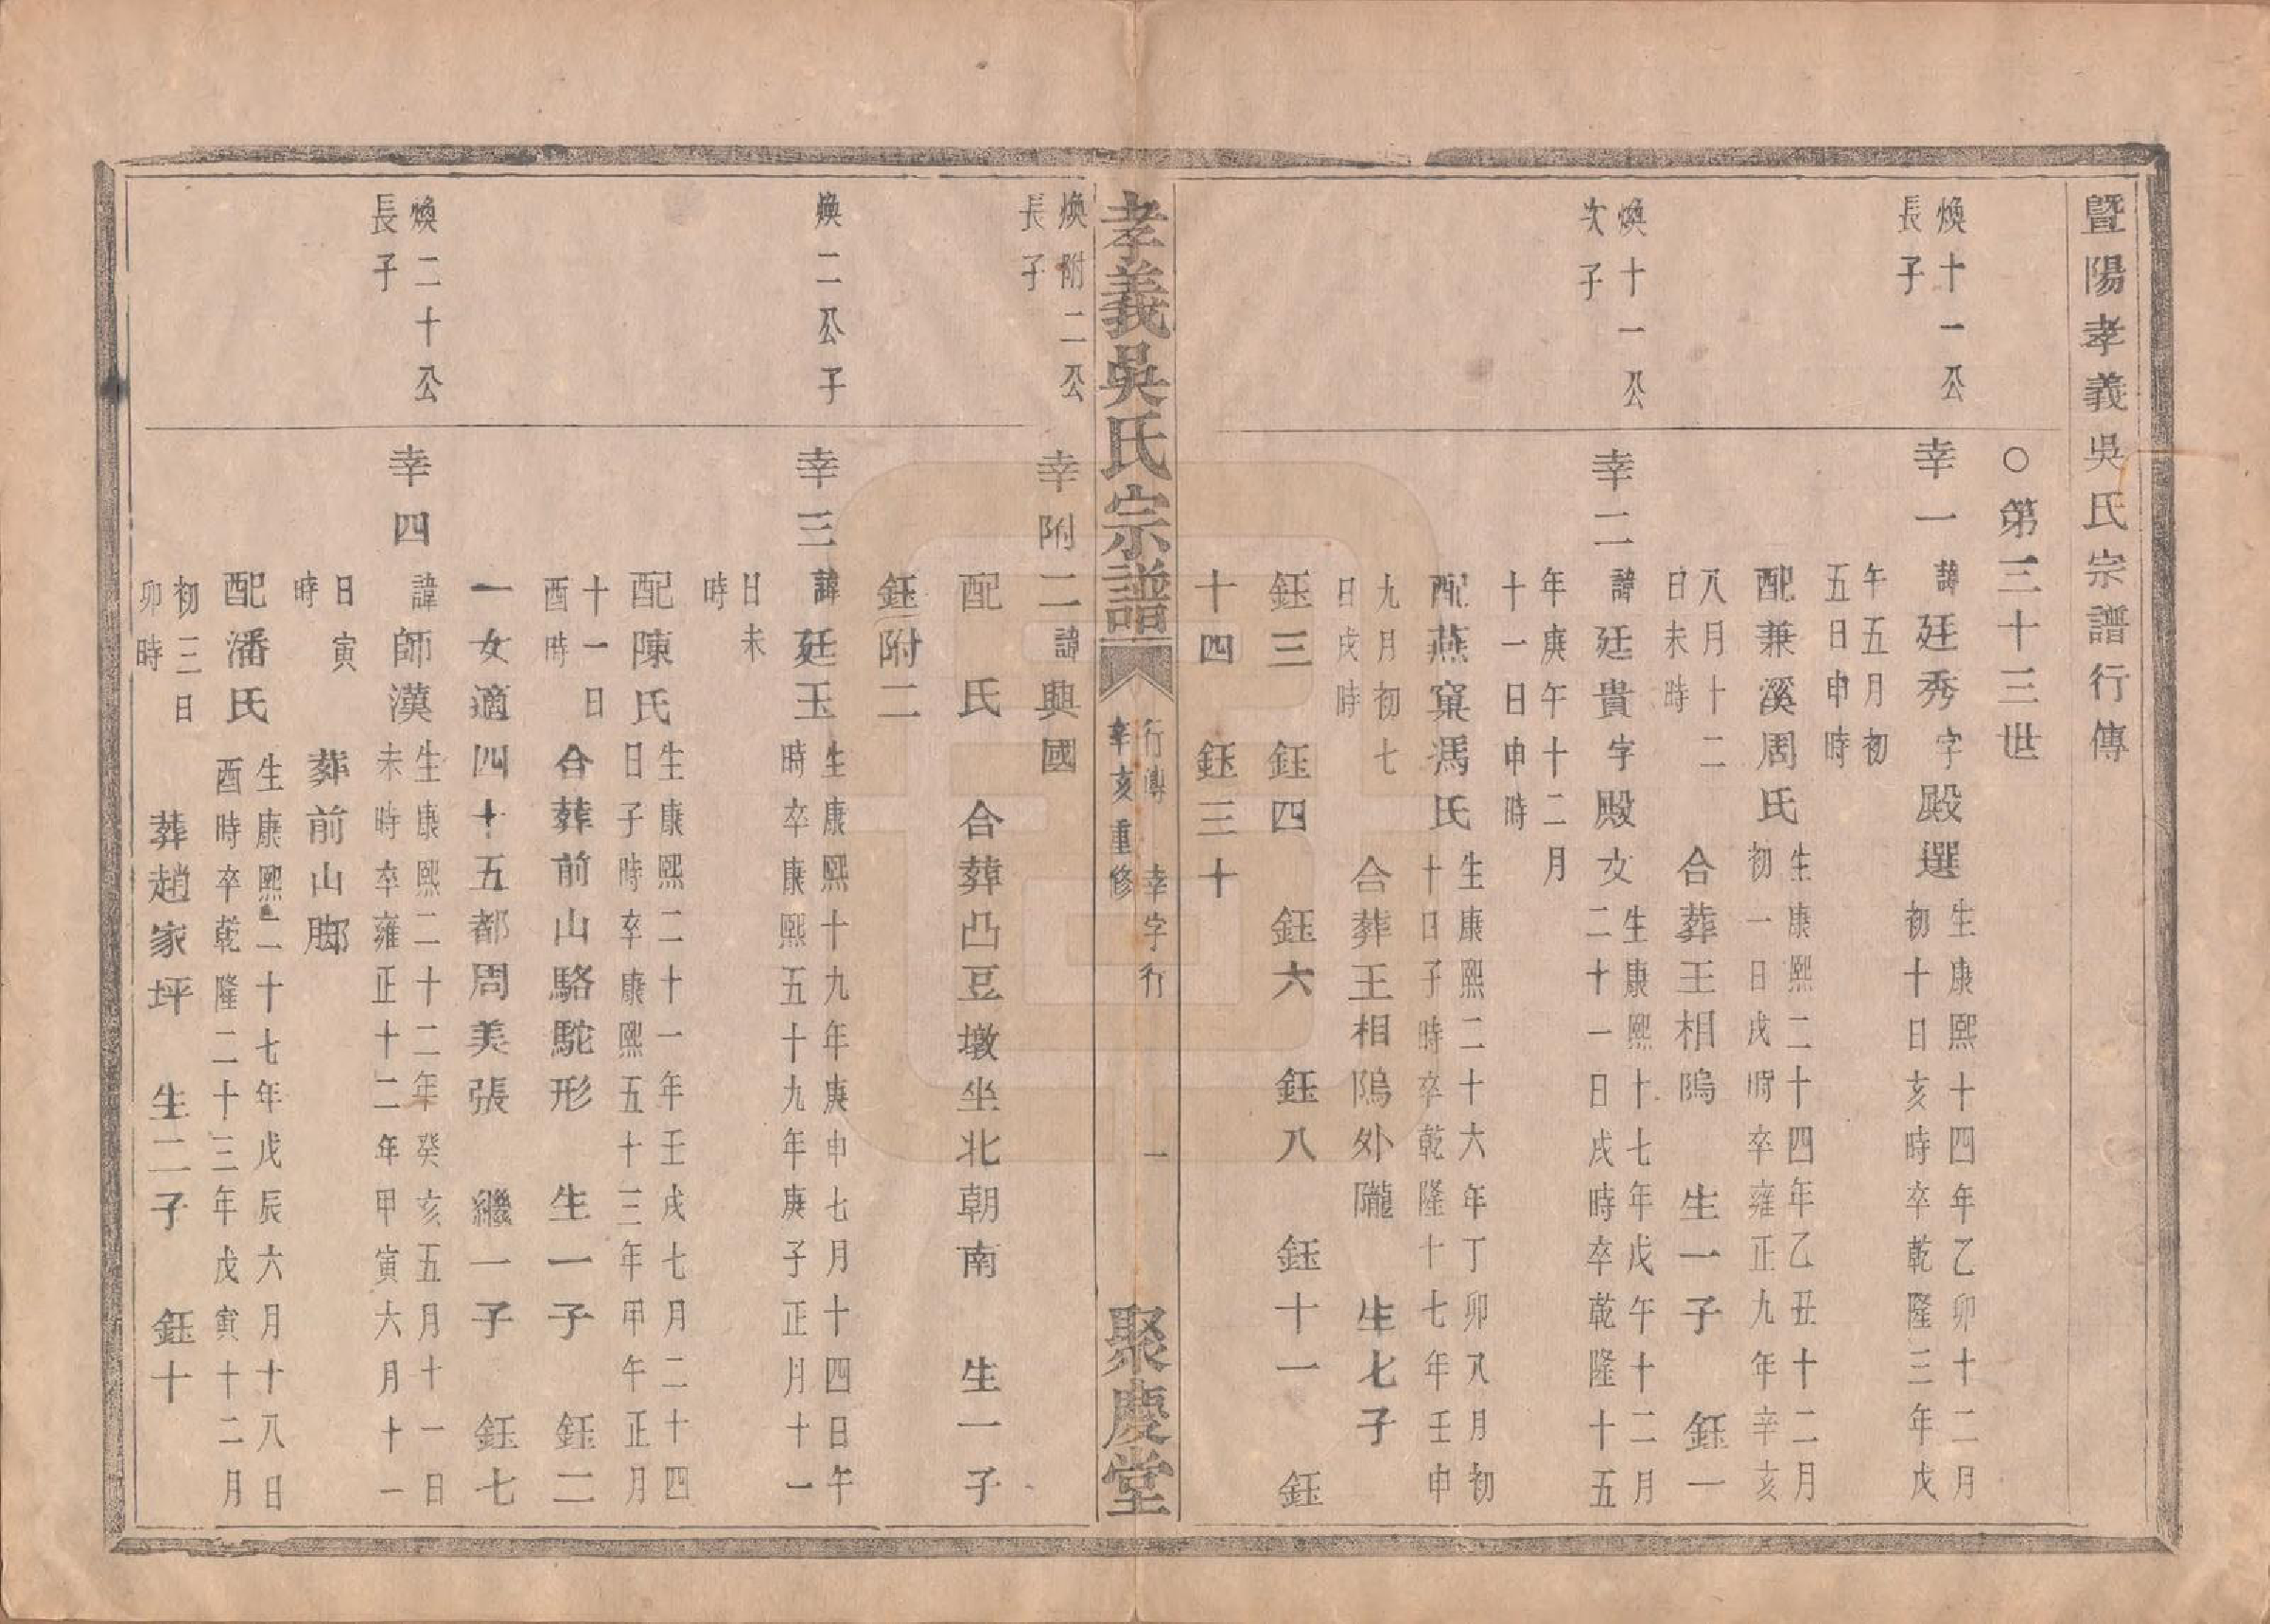 暨陽孝義吳氏宗譜行傳
○第三十三世
煥十一公
長子
幸一
諱廷秀字殿選
生康熙十四年乙卯十二月
初十日亥時卒乾隆三年戊
午五月初
五日申時
配兼溪周氏
生康熙二十四年乙丑十二月
初一日戌時卒雍正九年辛亥
八月十二
日未時
合葬王相隖 生一子 鈺一
煥十一公
次子
幸二
諱廷貴字殿文
生康熙十七年戊午十二月
二十一日戌時卒乾隆十五
年庚午十二月
十一日申時
配燕窠馮氏
生康熙二十六年丁卯八月初
十日子時卒乾隆十七年壬申
九月初七
日戌時
合葬王相隖外隴 生七子
鈺三 鈺四 鈺六 鈺八 鈺十一 鈺
十四 鈺三十
孝義吳氏宗譜
行傳 幸字行 一
辛亥重修
聚慶堂
煥附二公
長子
幸附二
諱興國
配 氏 合葬凸豆墩坐北朝南 生一子
鈺附二
煥二公子
幸三
諱廷玉
生康熙十九年庚申七月十四日午
時卒康熙五十九年庚子正月十一
日未
時
配陳氏
生康熙二十一年壬戌七月二十四
日子時卒康熙五十三年甲午正月
十一日
酉時
合葬前山駱駝形 生一子 鈺二
一女適四十五都周美張 繼一子 鈺七
煥二十公
長子
幸四
諱師漢
生康熙二十二年癸亥五月十一日
未時卒雍正十二年甲寅六月十一
日寅
時
葬前山脚
配潘氏
生康熙二十七年戊辰六月十八日
酉時卒乾隆二十三年戊寅十二月
初三日
卯時
葬趙家坪 生二子 鈺十